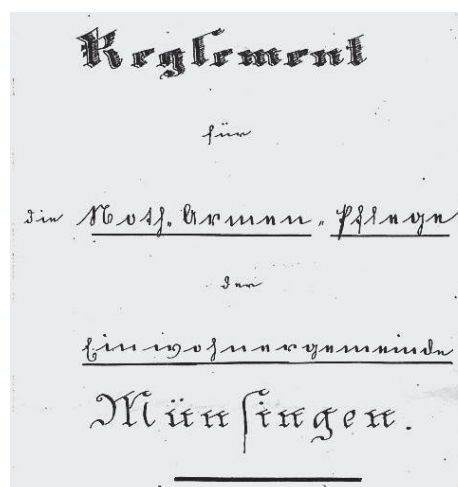 Reglement
für
die Noth. Armen-Pflege
der
Einwohnergemeinde
Münsingen.